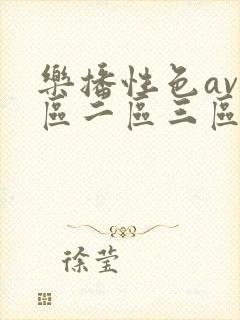 樂播性色av
區二區三區
徐莹